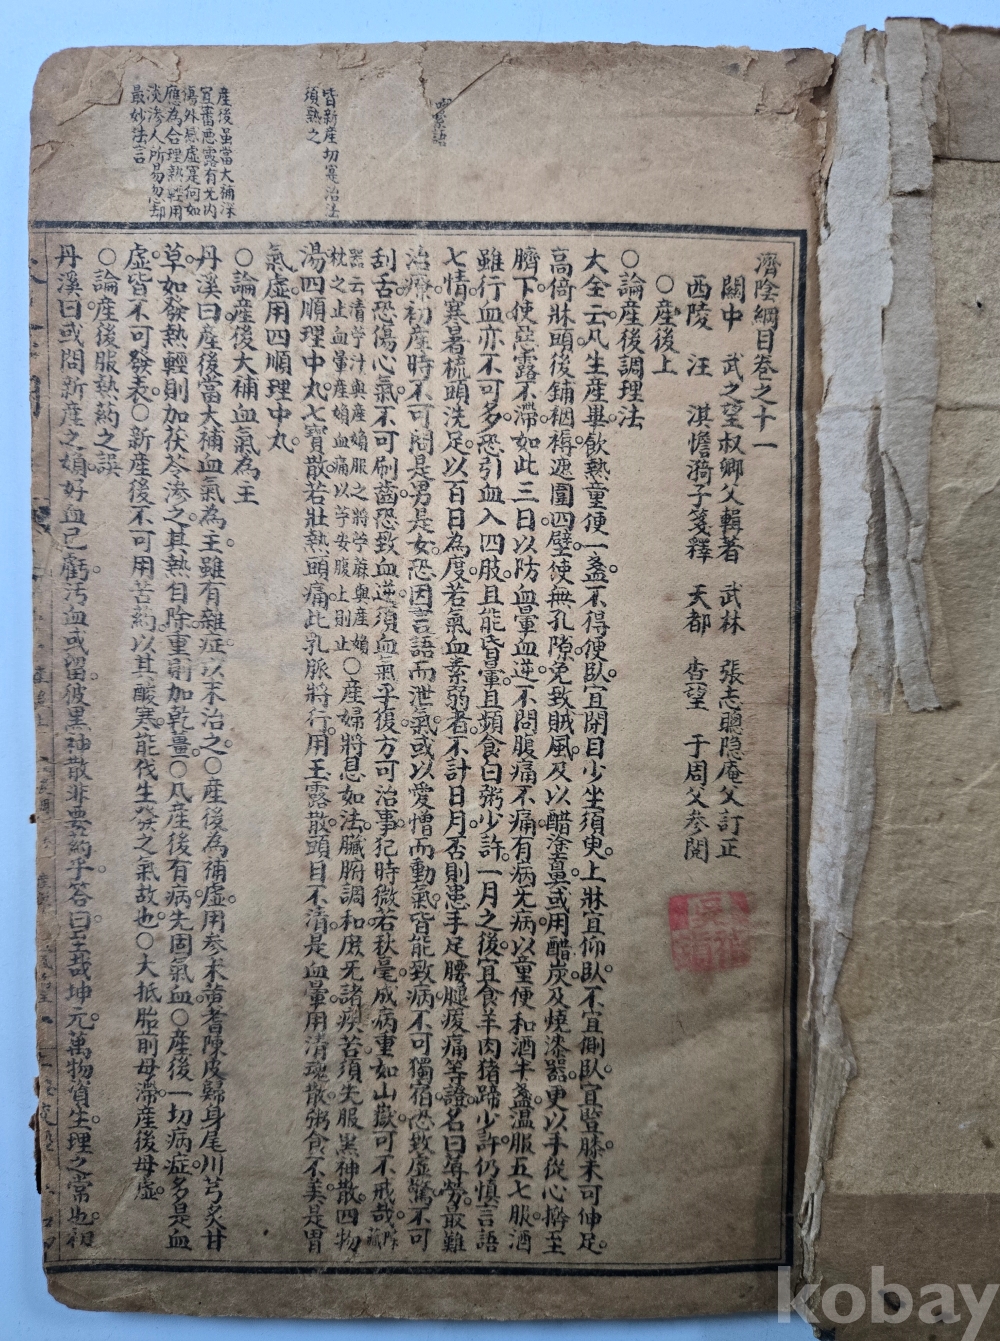 濟陰綱目卷之十一
關中　武之望叔卿父輯著　武林　張志聰隐庵父訂正
西陵　汪　淇憺漪子箋釋　天都　查望　于周父參閱
○產後上
○論產後調理法
大全云凡生產畢飲熱童便一盞不得便臥宜閉目少坐須臾上牀宜仰臥不宜側臥宜豎膝未可伸足
高倚牀頭後鋪裀褥遮圍四壁使無孔隙免致賊風及以醋塗鼻或用醋炭及燒漆器更以手從心擀至
臍下使惡露不滯如此三日以防血暈血逆不問腹痛不痛有病无病以童便和酒半盞温服五七服酒
雖行血亦不可多恐引血入四肢且能昏暈且頻食白粥少許一月之後宜食羊肉猪蹄少許仍慎言語
七情寒暑梳頭洗足以百日為度若氣血素弱者不計日月否則患手足腰腿痠痛等證名曰蓐勞最難
治療初產時不可問是男是女恐因言語而泄氣或以愛憎而動氣皆能致病不可獨宿恐致虛驚不可
刮舌恐傷心氣不可刷齒恐致血逆須血氣平復方可治事犯時微若秋毫成病重如山嶽可不戒哉
器云清芋汁與產婦服之將芋蔴與產婦
枕之止血暈產婦血痛以芋安腹上則止○產婦將息如法臟腑調和庶无諸疾苦須先服黑神散四物
湯四順理中丸七寶散若壯熱頭痛此乳脈將行用玉露散頭目不清是血暈用清魂散粥食不美是胃
氣虛用四順理中丸
○論產後大補血氣為主
丹溪曰產後當大補血氣為主雖有雜症以末治之○產後為補虛用參朮黃耆陳皮歸身尾川芎炙甘
草如發熱輕則加茯苓滲之其熱自除重則加乾薑○凡產後有病先固氣血○產後一切病症多是血
虛皆不可發表○新產後不可用芍藥以其酸寒能伐生發之氣故也○大抵胎前母滯產後母虛
○論產後服熱藥之誤
丹溪曰或問新產之婦好血已虧汚血或留彼黑神散非要藥乎答曰至哉坤元萬物資生理之常也初
皆新產切寔治法
須熟之
產後虽當大補深
宜審惡露有无内
傷外感虛寔何如
應為合理熱輕用
淡滲人所易忽却
最妙法言
kobay